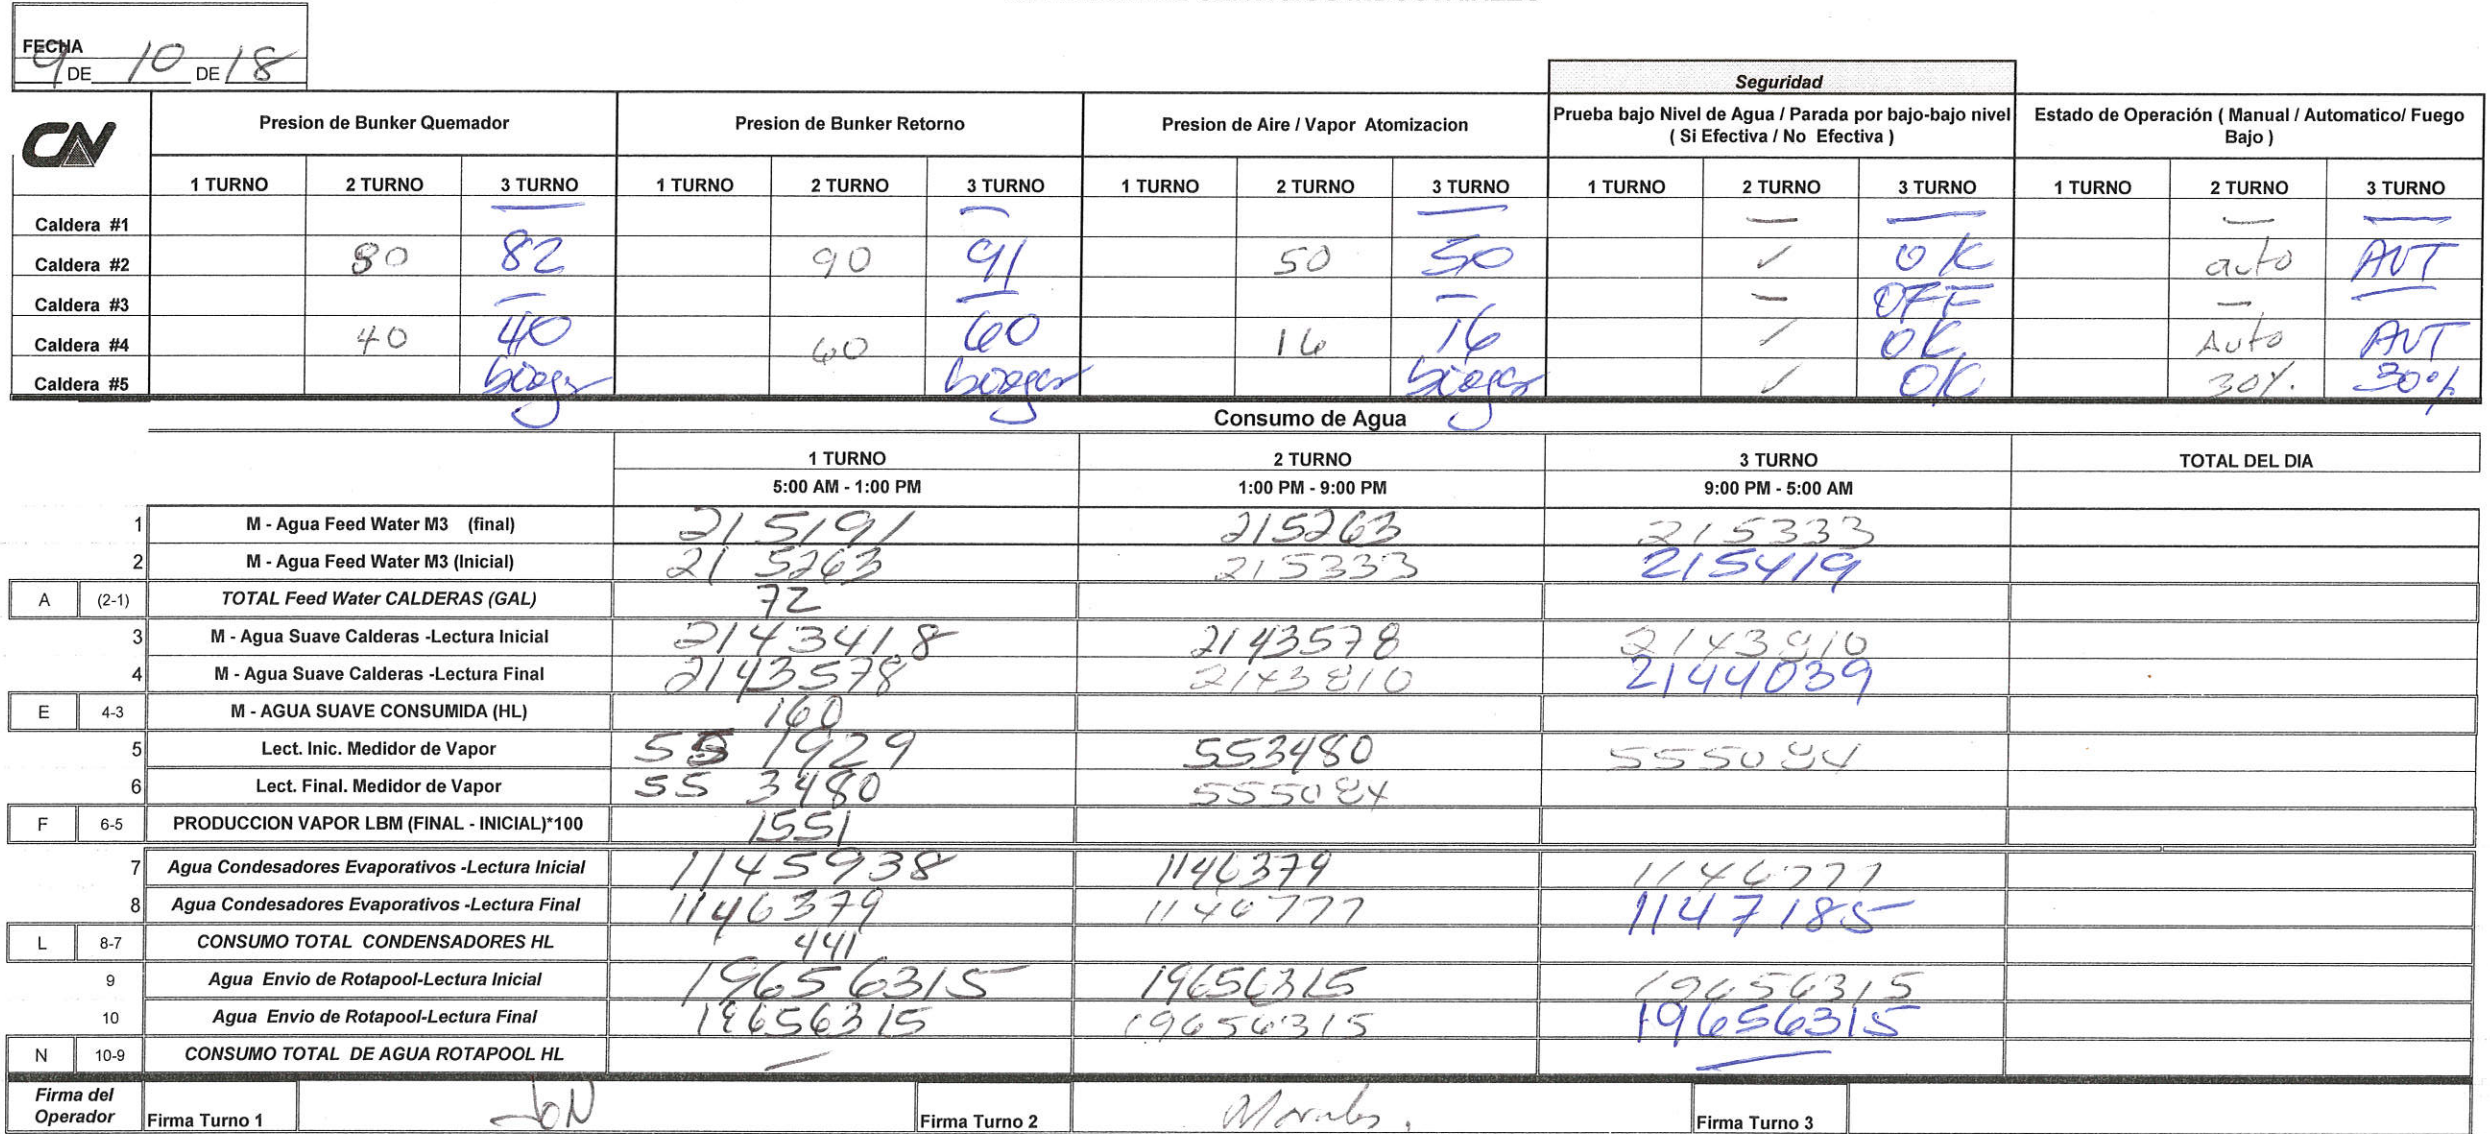 FECHA
9 DE 10 DE 18
Seguridad
CN Presion de Bunker Quemador Presion de Bunker Retorno Presion de Aire / Vapor Atomizacion Prueba bajo Nivel de Agua / Parada por bajo-bajo nivel ( Si Efectiva / No Efectiva ) Estado de Operación ( Manual / Automatico/ Fuego Bajo )
1 TURNO 2 TURNO 3 TURNO 1 TURNO 2 TURNO 3 TURNO 1 TURNO 2 TURNO 3 TURNO 1 TURNO 2 TURNO 3 TURNO 1 TURNO 2 TURNO 3 TURNO
Caldera #1 — — — — — — —
Caldera #2 80 82 90 91 50 50 ✓ OK auto AUT
Caldera #3 — — — — OFF — —
Caldera #4 40 40 60 60 16 16 ✓ OK Auto AUT
Caldera #5 biogas biogas biogas ✓ OK 30%. 30%
Consumo de Agua
1 TURNO 2 TURNO 3 TURNO TOTAL DEL DIA
5:00 AM - 1:00 PM 1:00 PM - 9:00 PM 9:00 PM - 5:00 AM
1 M - Agua Feed Water M3 (final) 215191 215263 215333
2 M - Agua Feed Water M3 (Inicial) 215263 215333 215419
A (2-1) TOTAL Feed Water CALDERAS (GAL) 72
3 M - Agua Suave Calderas -Lectura Inicial 2143418 2143578 2143810
4 M - Agua Suave Calderas -Lectura Final 2143578 2143810 2144039
E 4-3 M - AGUA SUAVE CONSUMIDA (HL) 160
5 Lect. Inic. Medidor de Vapor 551929 553480 555084
6 Lect. Final. Medidor de Vapor 553480 555084
F 6-5 PRODUCCION VAPOR LBM (FINAL - INICIAL)*100 1551
7 Agua Condesadores Evaporativos -Lectura Inicial 1145938 1146379 1146777
8 Agua Condesadores Evaporativos -Lectura Final 1146379 1146777 1147185
L 8-7 CONSUMO TOTAL CONDENSADORES HL 441
9 Agua Envio de Rotapool-Lectura Inicial 19656315 19656315 19656315
10 Agua Envio de Rotapool-Lectura Final 19656315 19656315 19656315
N 10-9 CONSUMO TOTAL DE AGUA ROTAPOOL HL — —
Firma del Operador Firma Turno 1 JoN Firma Turno 2 Morales. Firma Turno 3